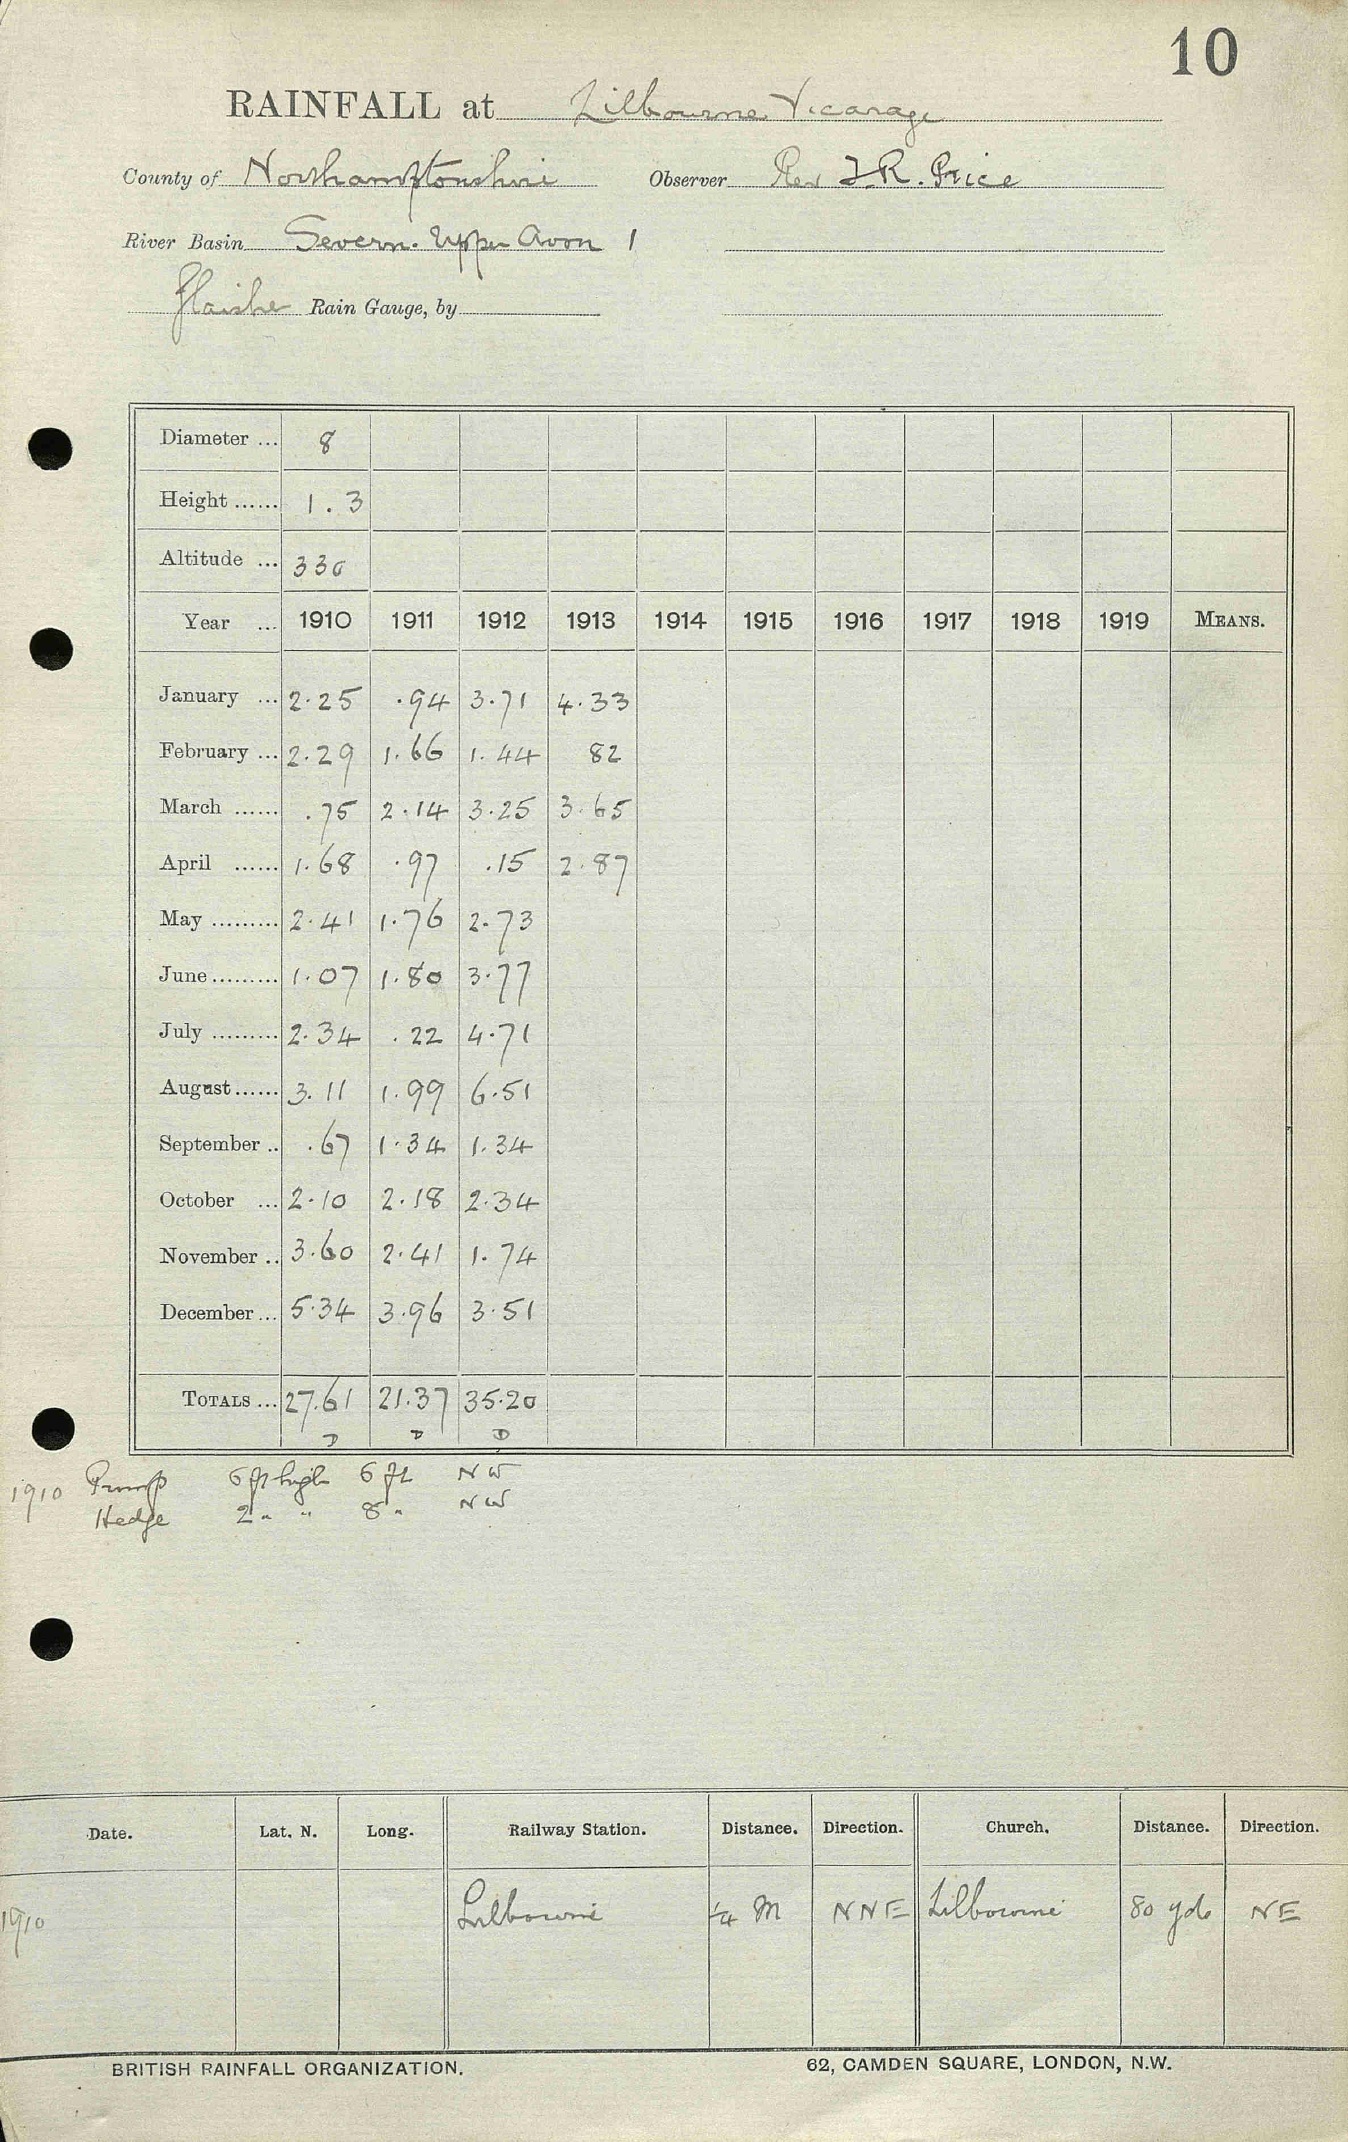 10
RAINFALL at Lilbourne Vicarage
County of Northamptonshire Observer Rev J. R. Price
River Basin Severn. Upper Avon 1
Glaisher Rain Gauge, by
Diameter ... 8
Height ...... 1.3
Altitude ... 330
Year ... 1910 1911 1912 1913 1914 1915 1916 1917 1918 1919 MEANS.
January ... 2.25 .94 3.71 4.33
February ... 2.29 1.66 1.44 82
March ...... .75 2.14 3.25 3.65
April ...... 1.68 .97 .15 2.87
May ......... 2.41 1.76 2.73
June ......... 1.07 1.80 3.77
July ......... 2.34 .22 4.71
August ...... 3.11 1.99 6.51
September .. .67 1.34 1.34
October ... 2.10 2.18 2.34
November .. 3.60 2.41 1.74
December ... 5.34 3.96 3.51
TOTALS ... 27.61 21.37 35.20
D D D
1910 Pump 6 ft high 6 ft NW
Hedge 2 " " 8 " NW
Date. Lat. N. Long. Railway Station. Distance. Direction. Church. Distance. Direction.
1910 Lilbourne 1/4 M NNE Lilbourne 80 yds NE
BRITISH RAINFALL ORGANIZATION. 62, CAMDEN SQUARE, LONDON, N.W.